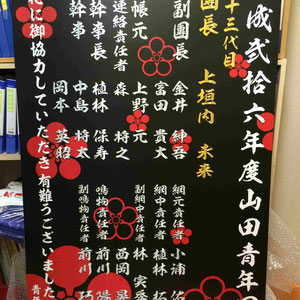 成弐拾六年度山田青年団
十三代目
團長 上垣内 未来
副團長 金井 紳吾
富田 貴大
帳元 上野 元
連絡責任者 森 将之
幹事長 植林 保寿
幹事 中島 将太
岡本 英昭
網元責任者 小浦
網中責任者 植林 拓
副網中責任者 林 実
鳴物責任者 西岡
副鳴物責任者 前川 陽
前川 巧
に御協力していただき有難うございました
責任